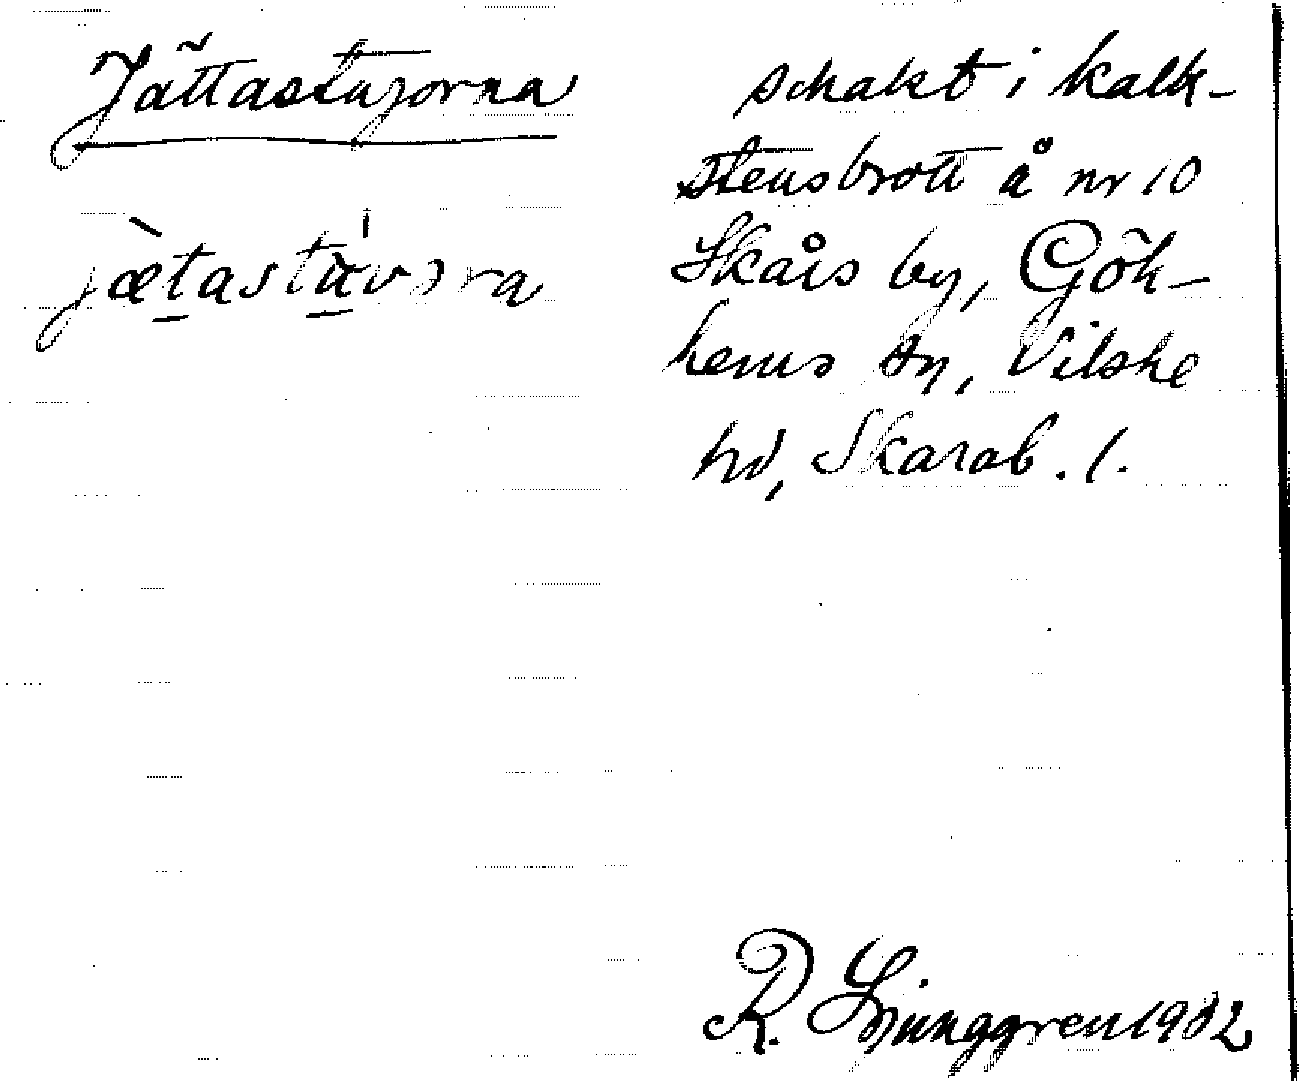 Jättastugorna
schakt i kalk-
stensbrott å nr 10
Skårs by, Gök-
hems sn, Vilske
hd, Skarab. l.
R. Ljunggren 1932